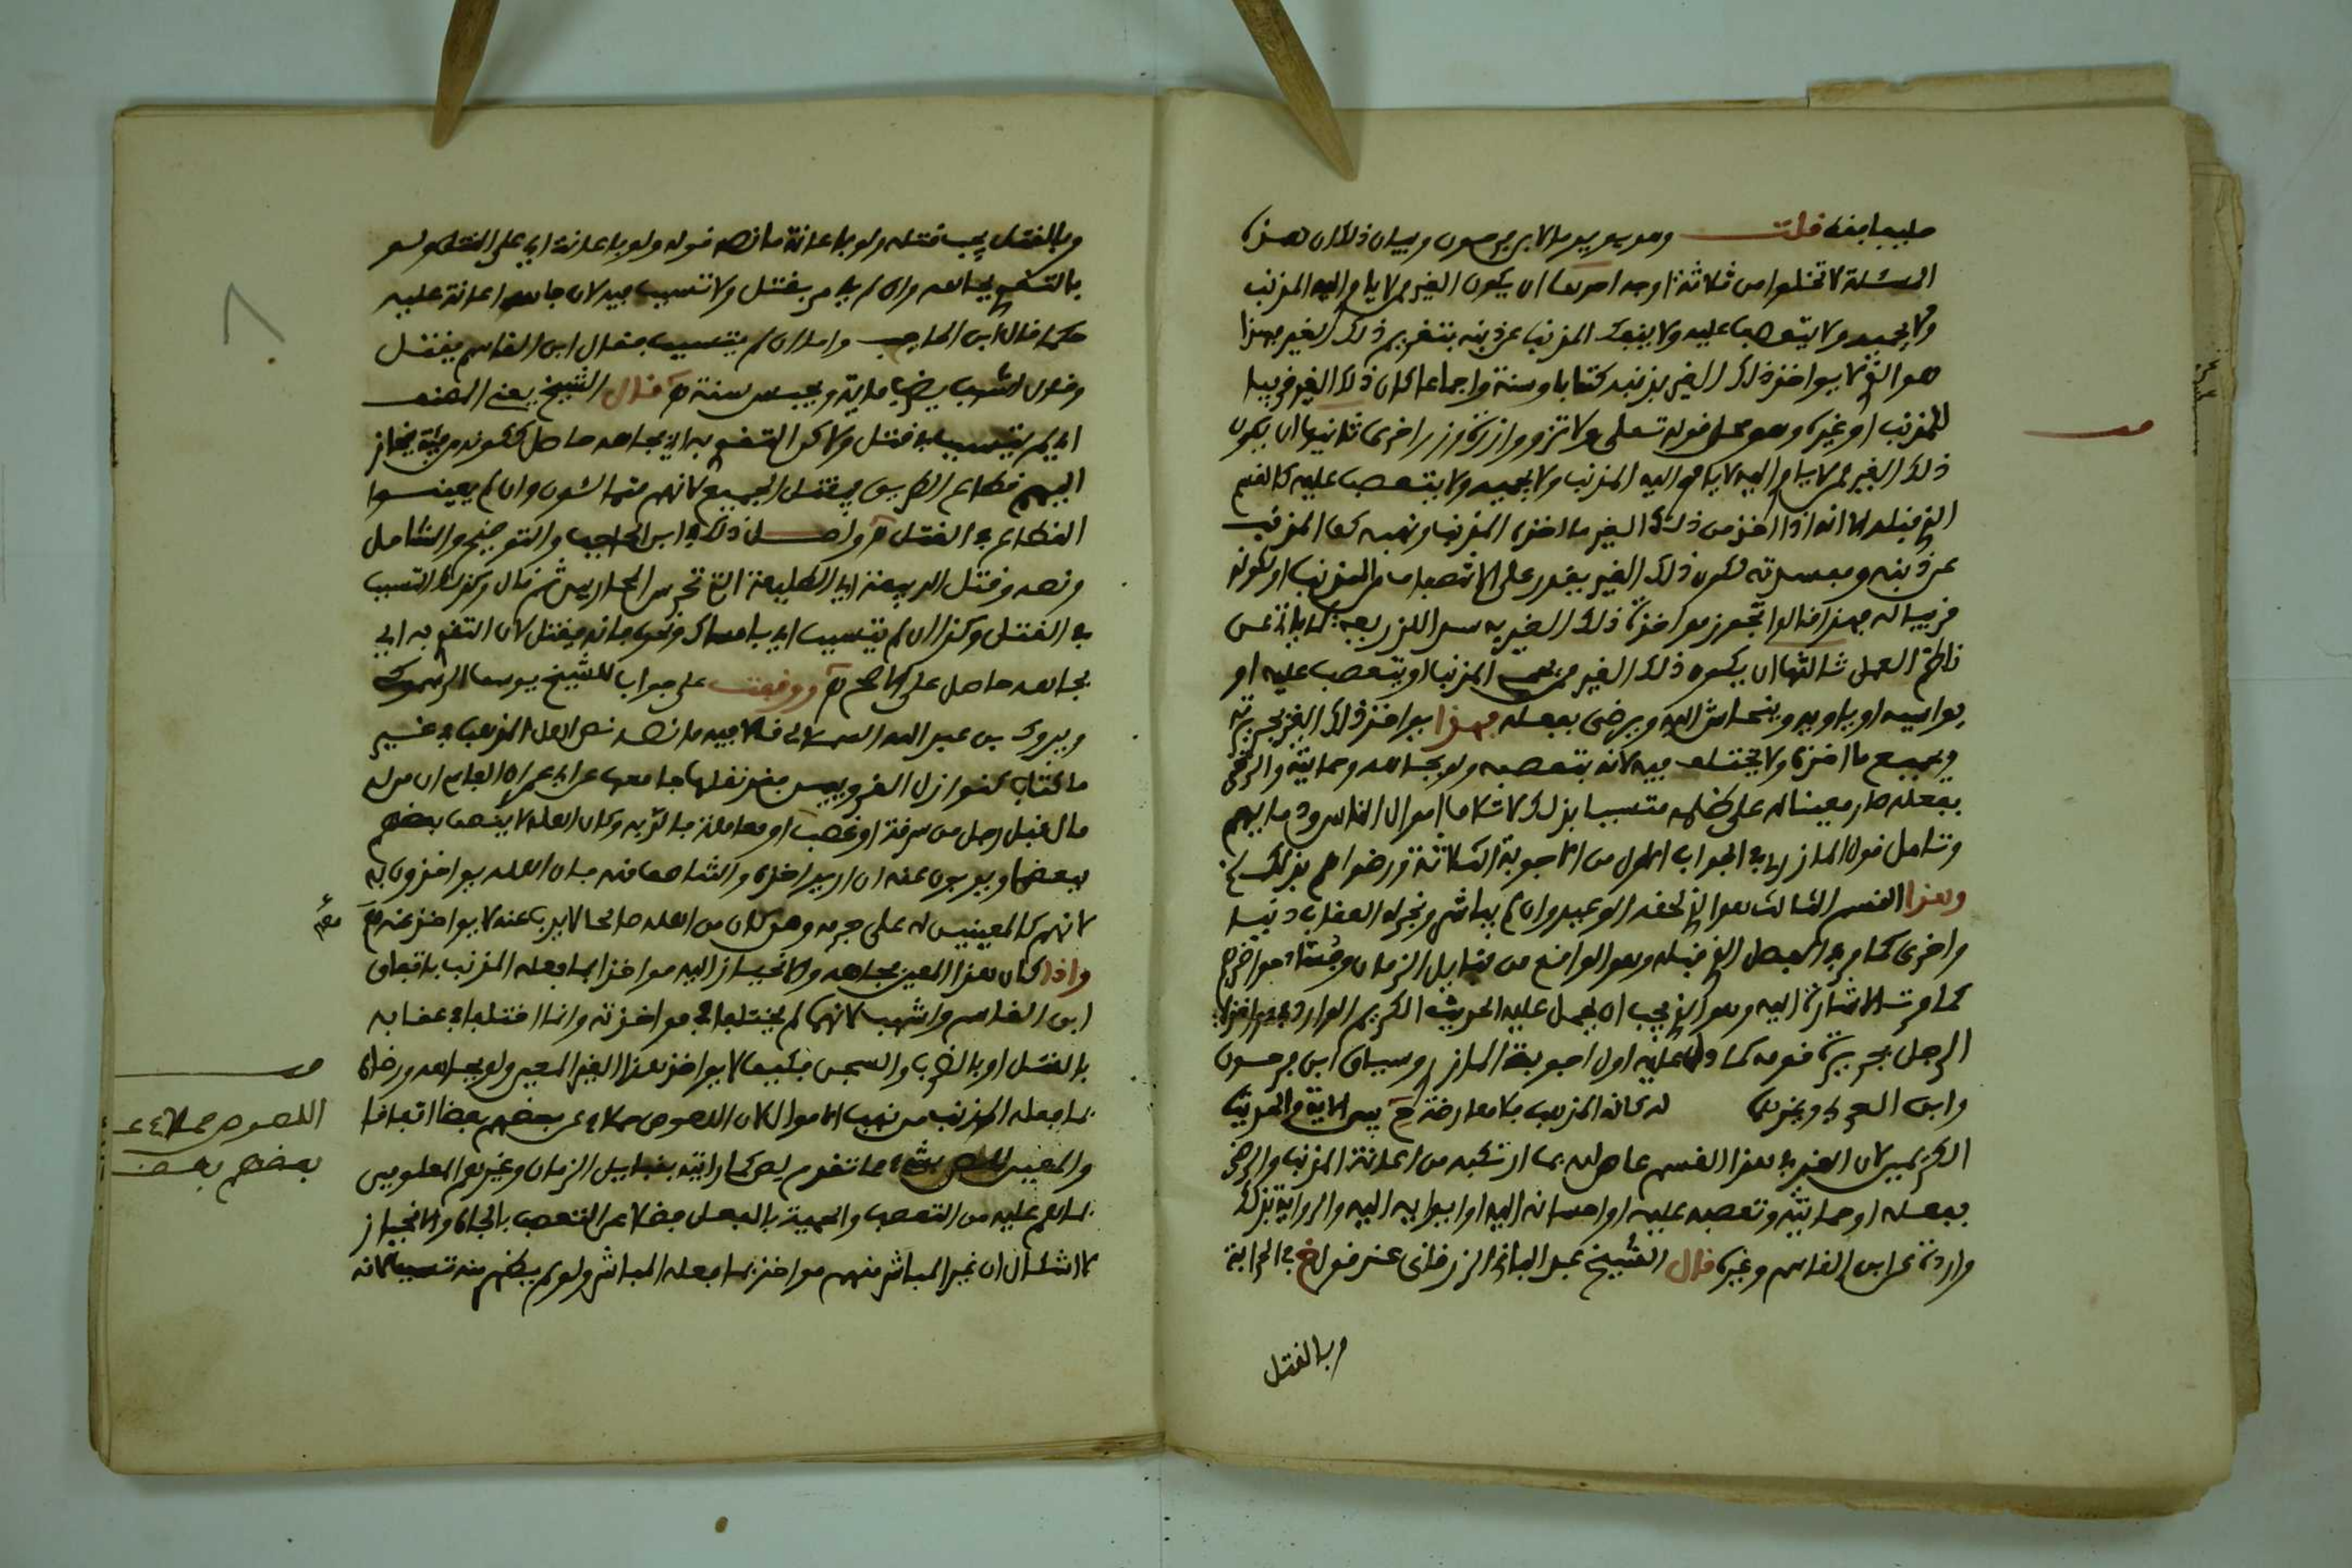 قلت وهو يويد ما لابن برحون وبيان ذلك ان هذه
المسئلة لا تخلوا من ثلاثة اوجه احدها ان يكون الغير ممن لا ياوي اليه المذنب
ولا يحميه ولا يتعصب عليه ولا ينفك المذنب عن ذنبه بتغريم ذلك الغير فهذا
هو الذي لا يواخذ ذلك الغير بذنبه كتابا وسنة واجماعا كان ذلك الغير قريبا
للمذنب او غيره وهو محمل قوله تعلى ولا تزر وازرة وزر اخرى ثانيها ان يكون
ذلك الغير ممن لا ياوي اليه المذنب ولا يحميه ولا يتعصب عليه كالقسم
الذي قبله الا انه اذا اخذ من ذلك الغير ما اخذه المذنب ونهبه كف المذنب
عن ذنبه ومفسدته لكون ذلك الغير يقدر على الانتصاف من المذنب او لكونه
قريبا له فهذا قالوا تجوز مواخذة ذلك الغير به سدا للذريعة كما ياتي عن
ناظم العمل ثالثها ان يكون ذلك الغير ممن يحمي المذنب او يتعصب عليه او
يواسيه او ياويه وينحاش اليه ويرضى بفعله فهذا يواخذ ذلك الغير بجريرته
وبجميع ما اخذه ولا يختلف فيه لانه بتعصبه ولو بجاهه وحمايته والرضى
بفعله صار معينا له على ظلمه متسببا بذلك لاتلاف اموال الناس ودمايهم
وتامل قول المازري في الجواب الاول من الاجوبة الثلاثة ورضواهم بذلك الخ
وهذا القسم الثالث هو الذي لحقه الوعيد وان لم يباشر ونجزله العقاب دنيا
واخرى كما مر في الفصل الذي قبله وهو الواقع من قبايل الزمان
كما مرت الاشارة اليه وهو الذي يجب ان يحمل عليه الحديث الكريم الوارد
الرجل بجريرة قومه كما دل عليه اول اجوبة المازري وسياق ابن برحون
وابن العربي وغيرهما له كانه المذهب بلا معارضة ح بين الاية والحديث
الكريمين لان الغير في هذا القسم عاص لله بما ارتكبه من اعانة المذنب والرضى
بفعله او حمايته وتعصبه عليه او احسانه اليه او ايوايه اليه والرواية بذلك
واردة عن ابن القاسم وغيره قال الشيخ عبد الباقي الزرقاني عند قول خ في الحرابة
وبالقتل
وبالقتل يجب قتله ولو باعانة ما نصه قوله ولو باعانة اي على القتل ولو
بالتقوي بجاهه وان لم يامر بقتل ولا تسبب فيه لان جاهه اعانة عليه
حكما قاله ابن الحاجب واما ان لم يتسبب فقال ابن القاسم يقتل
وقال اشهب يضرب ماية ويحبس سنة ه قال الشيخ يعني المصنف
اي لم يتسبب في قتل ولاكن التقوي به اي بجاهه حاصل ككونه من فئة ينحاز
اليهم قطاع الطريق فيقتل الجميع لانهم متمالئون وان لم يعينوا
القطاع في القتل ه واصل ذلك في ابن الحاجب والتوضيح والشامل
ونصه وقتل الربيئة اي الطليعة التي تحرس المحاربين ثم قال وكذلك المتسبب
في القتل وكذا ان لم يتسبب اي بامساك ونحوه فانه يقتل لان التقوي به اي
بجاهه حاصل على الاصح ه ووقفت على جواب للشيخ يوسف الرسموكي
ويبورك بن عبد الله السملالي قالا فيه ما نصه نص اهل المذهب في غير
ما كتاب كنوازل القرويين فقد نقلها جامعها عن ابي عمران الفاسي ان من له
مال قبل رجل من سرقة او غصب او معاملة فالتوى به وكان اهله لا ينصف بعضهم
بعضا ويذبون عنه ان اريد اخذه والتناصف منه فان اهله يواخذون به
لانهم كالمعينين له على جرمه ومن كان من اهله صالحا لا يذب عنه لا يواخذ عنه ه
واذا كان هذا المعين بجاهه والانحياز اليه مواخذا بما فعله المذنب باتفاق
ابن القاسم واشهب لانهما لم يختلفا في مواخذته وانما اختلفا في عقابه
بالقتل او بالضرب والسجن فكيف لا يواخذ هذا الغير المعين ولو بجاهه ورضاه
بما فعله المذنب من نهب الاموال لان اللصوص حملاء عن بعضهم بعضا اتفاقا
والمعين للص بشيء مما تقدم لص كما رايته بقبايل الزمان وغيرهم المعلومين
بما هم عليه من التعصب والحمية بالفعل فضلا عن التعصب بالجاه والانحياز
لا اشكال ان غير المباشر منهم مواخذ بما فعله المباشر ولو لم يظهر منه تسبب لانه
قف
اللصوص حملاء عن
بعضهم بعضا